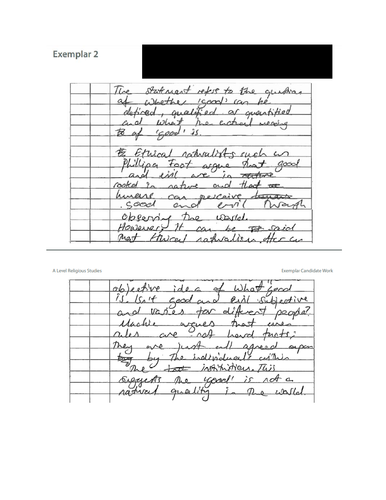 Exemplar 2
The statement refers to the question
of whether 'good' can be
defined, qualified or quantified
and what the actual meaning
of 'good' is.
Ethical naturalists such as
Phillipa Foot argue that good
and evil are in
rooted in nature and that
humans can perceive
good and evil through
observing the world.
However, it can be said
that Ethical naturalism offer an
A Level Religious Studies
Exemplar Candidate Work
objective idea of what good
is. Isn't good and evil subjective
and varies for different people?
Mackie argues that
rules are not hard facts;
they are just all agreed upon
by the individuals within
the institution. This
suggests the 'good' is not a
natural quality in the world.